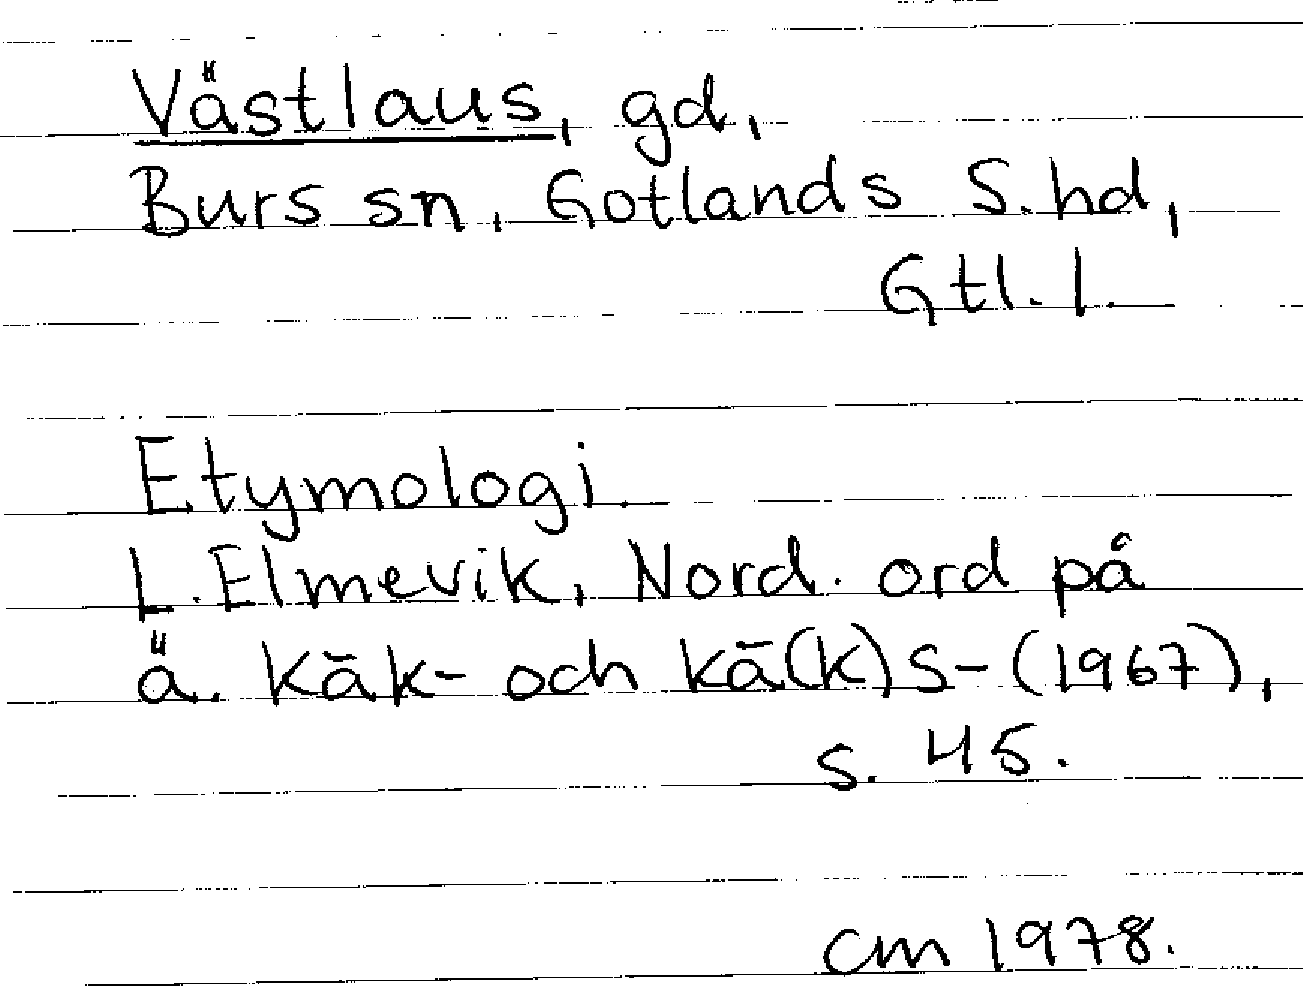 Västlaus, gd,
Burs sn, Gotlands S. hd,
Gtl. l.
Etymologi.
L. Elmevik, Nord. ord på
ä. kāk- och kā(k)s- (1967),
s. 45.
CM 1978.